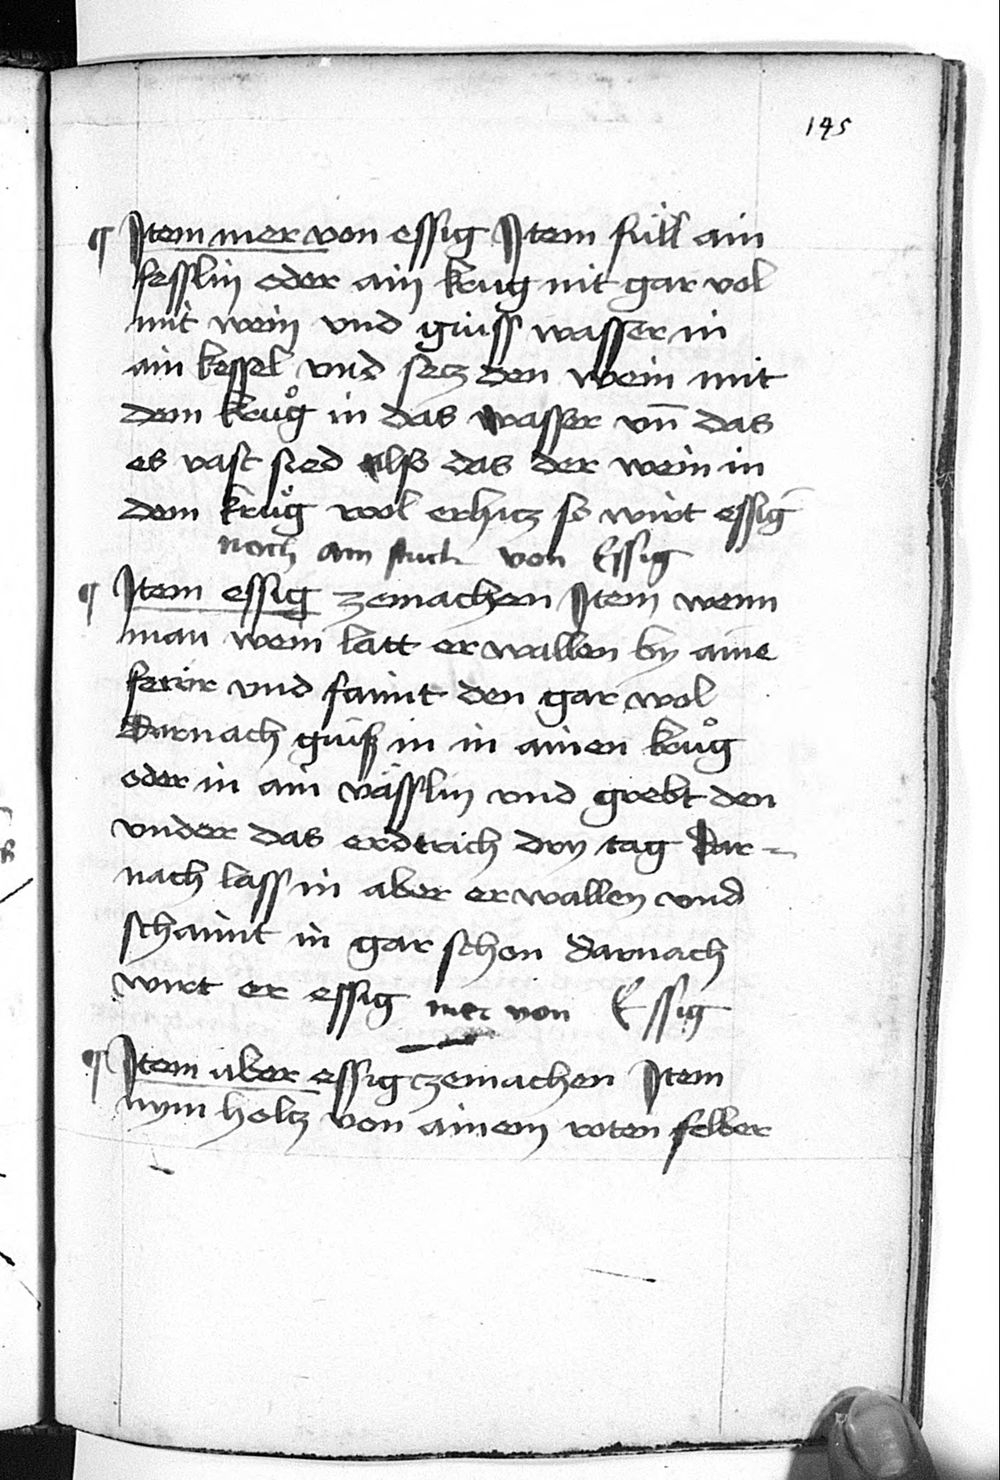 145
¶ Item mer von essig Item füll ain
fesslin oder ain krug nit gar vol
mit wein vnd giuss wasser in
ain kessel vnd setz den wein mit
dem kruͦg in das wasser vn̄ das
es vast sied alß das der wein in
dem kruͦg wol erhitz so wirt essig
noch ain stuck von Essig
¶ Item essig zemachen Item wenn
man wein latt er wallen by aine
ferrꝛ vnd faimt den gar wol
Darnach giuß in in ainen kruͦg
oder in ain vässlin vnd grebt den
vnder das erdtrich dry tag Dar=
nach lass in aber er wallen vnd
schaimt in gar schon darnach
wirt er essig mer von Essig
¶ Item aber essig zemachen Item
nym holtz von ainem roten felber